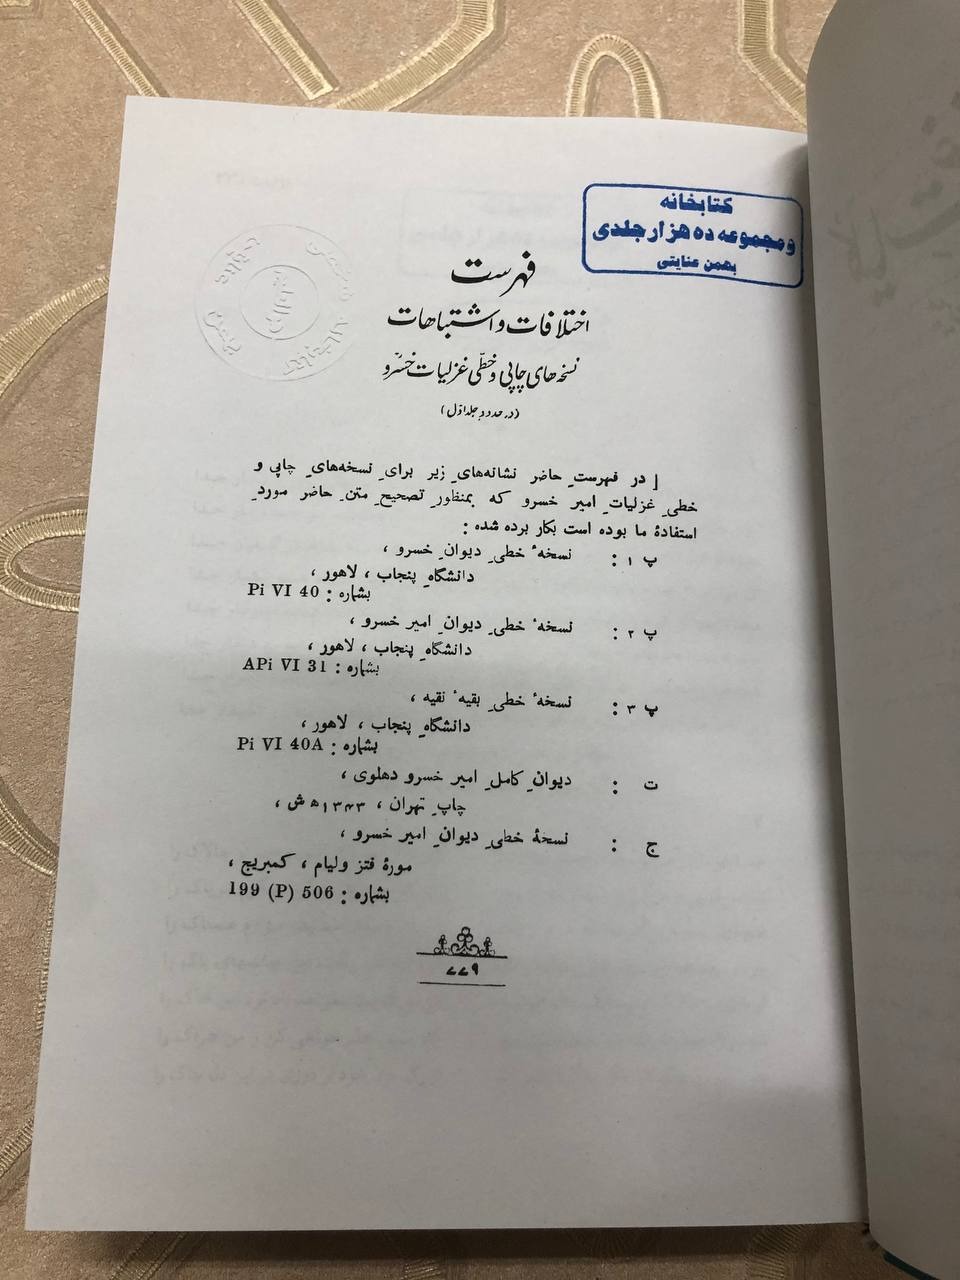 کتابخانه
و مجموعه ده هزار جلدی
بهمن عنایتی
فهرست
اختلافات و اشتباهات
نسخه های چاپی و خطّی غزلیات خسرو
(در حدود جلد اول)
[ در فهرستِ حاضر نشانه‌های زیر برای نسخه‌های چاپی و
خطیِ غزلیاتِ امیر خسرو که بمنظورِ تصحیحِ متنِ حاضر موردِ
استفادهٔ ما بوده است بکار برده شده :
پ ۱ : نسخهٔ خطیِ دیوانِ خسرو ،
دانشگاهِ پنجاب ، لاهور ،
بشماره : Pi VI 40
پ ۲ : نسخهٔ خطیِ دیوانِ امیر خسرو ،
دانشگاهِ پنجاب ، لاهور ،
بشماره : APi VI 31
پ ۳ : نسخهٔ خطیِ بقیهٔ نقیه ،
دانشگاهِ پنجاب ، لاهور ،
بشماره : Pi VI 40A
ت : دیوانِ کاملِ امیر خسرو دهلوی ،
چاپِ تهران ، ۱۳۴۳ ه ش ،
ج : نسخهٔ خطیِ دیوانِ امیر خسرو ،
موزهٔ فتز ولیام ، کمبریج ،
بشماره : 199 (P) 506
۷۷۹